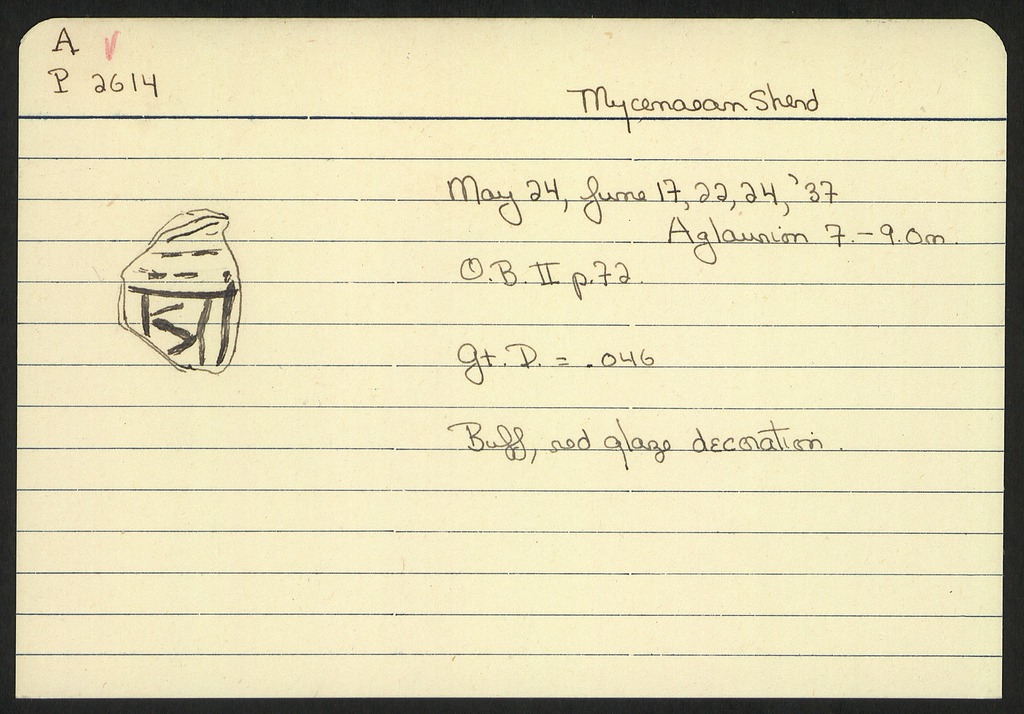 A
P 2614
Mycenaean Sherd
May 24, June 17, 22, 24, '37
Aglaurion 7.-9.0m.
O.B. II p.72.
Gt. D. = .046
Buff, red glaze decoration.